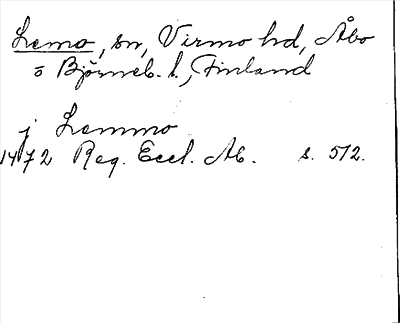 Lemo, sn, Virmo hd, Åbo
o Björneb. l., Finland
j Lemmo
1472 Reg. Eccl. Ab. s. 512.